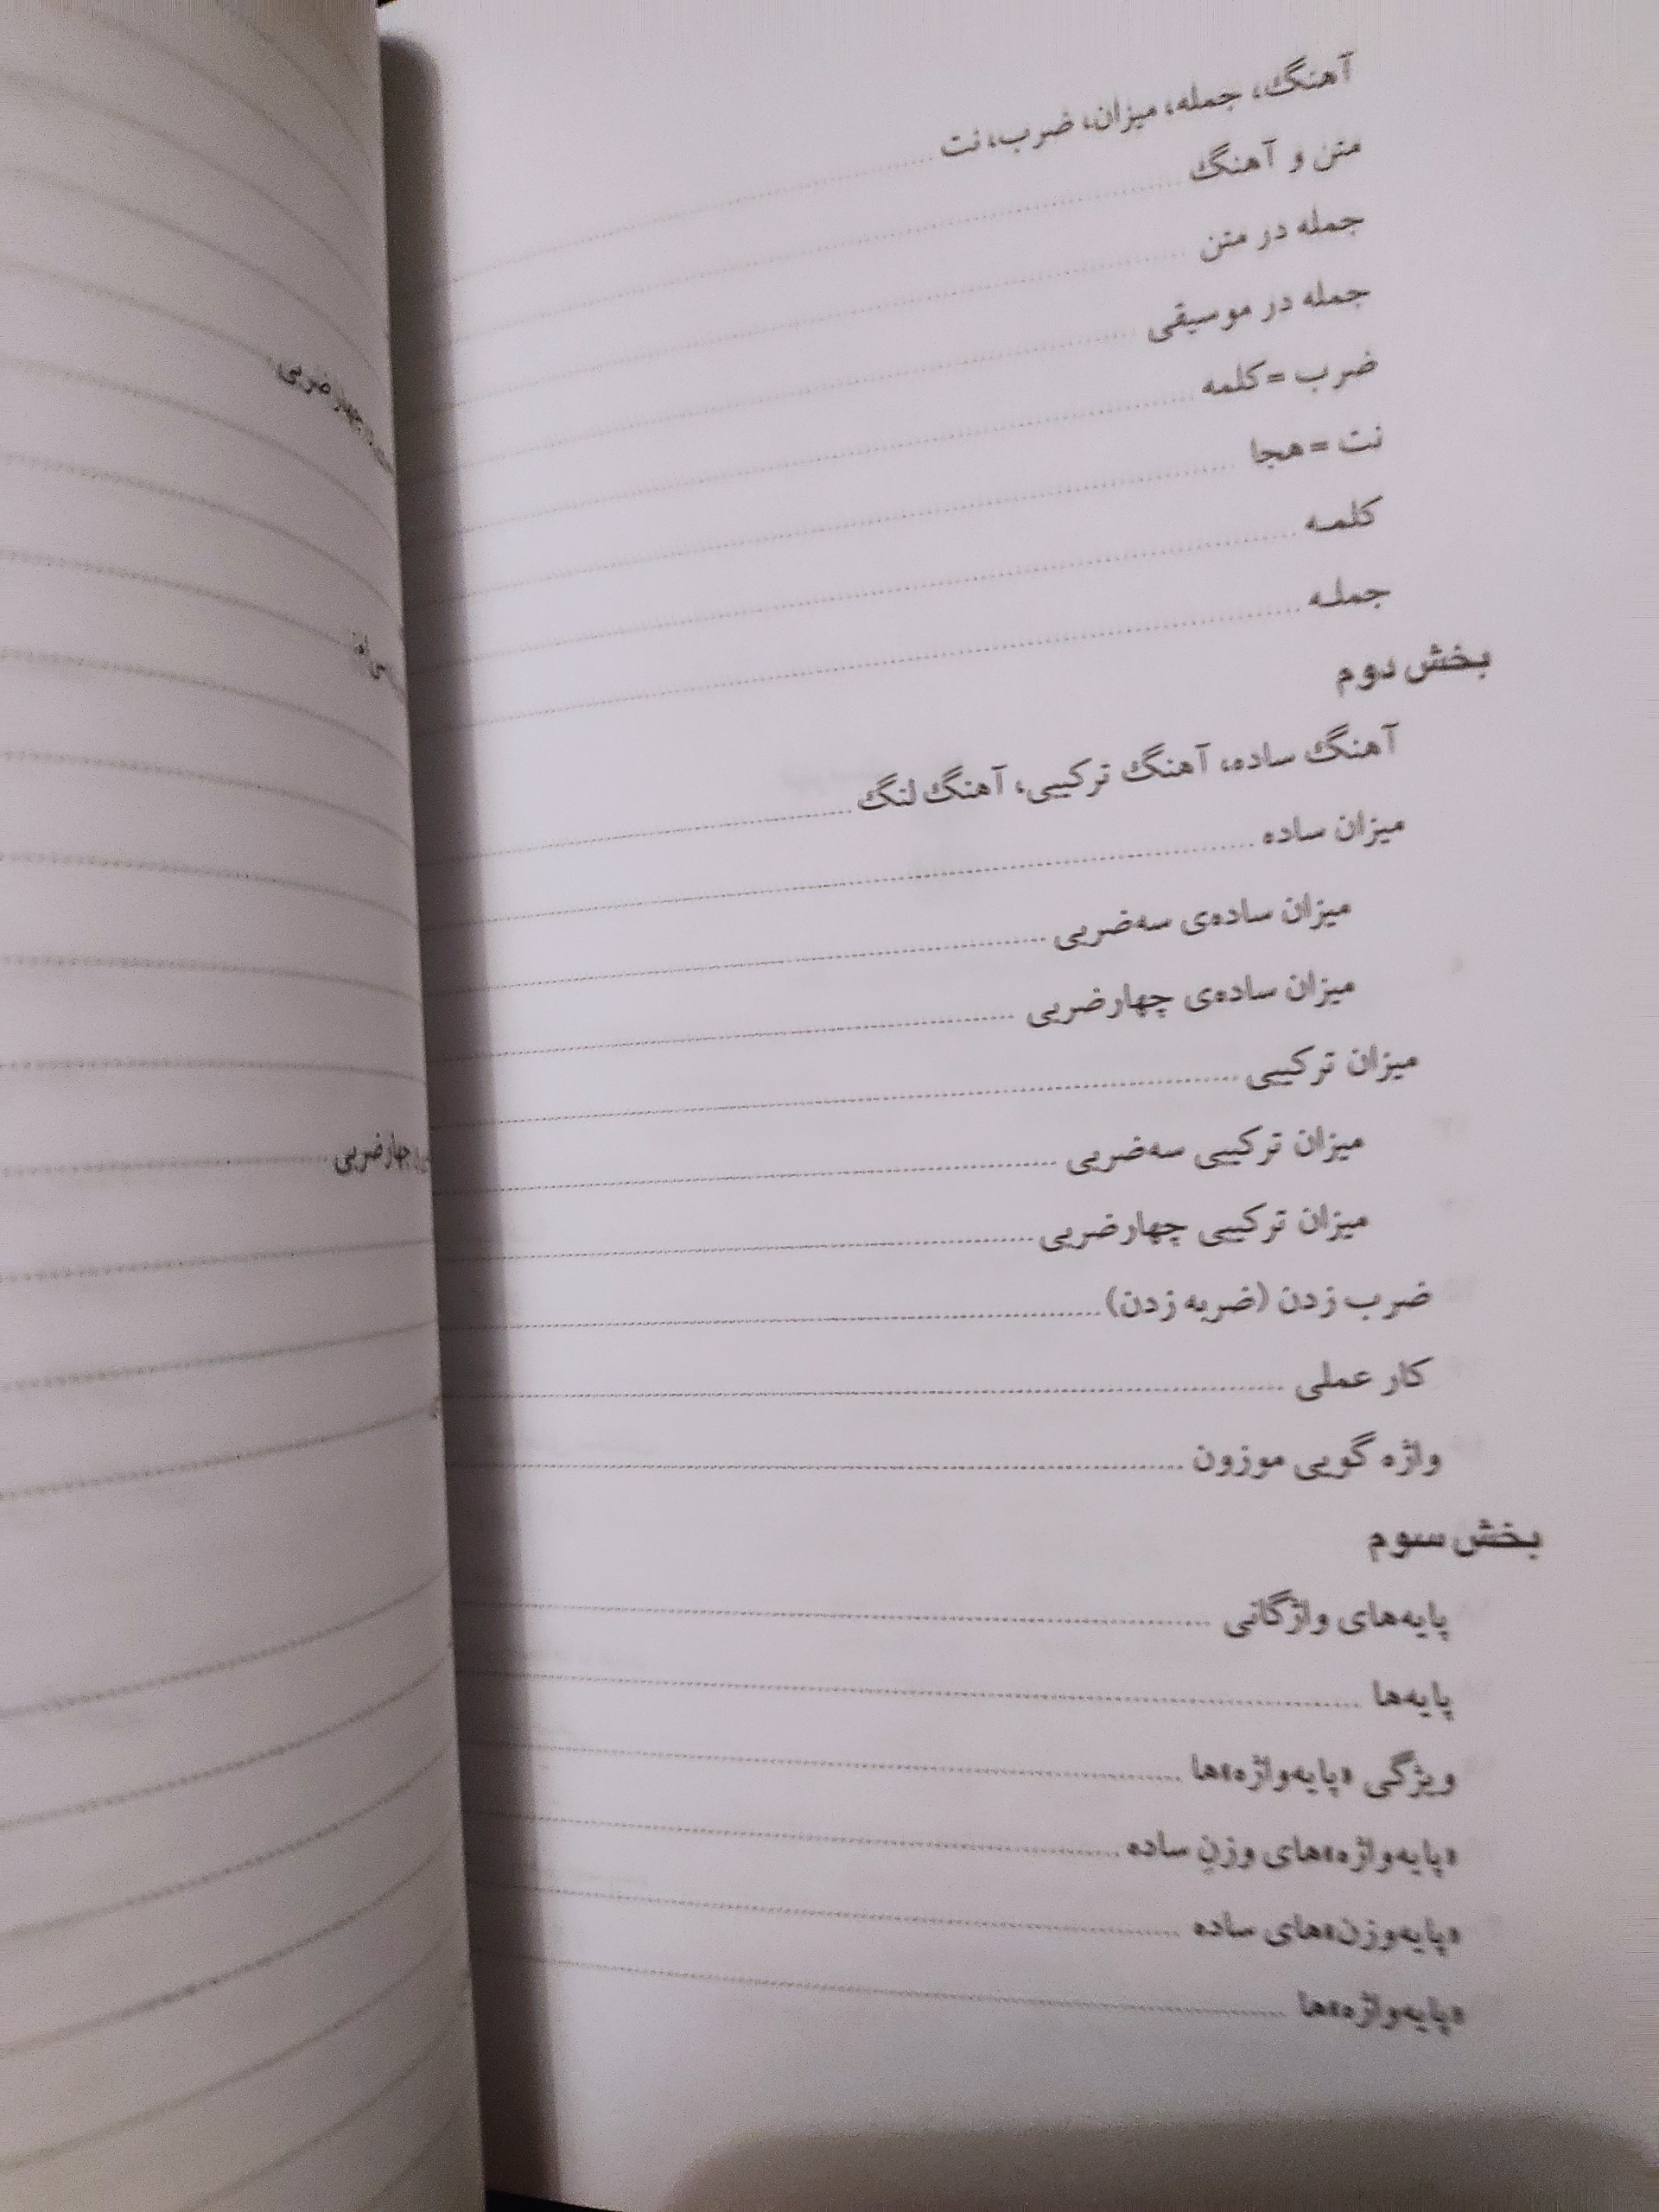 آهنگ، جمله، میزان، ضرب، نت
متن و آهنگ
جمله در متن
جمله در موسیقی
ضرب = کلمه
نت = هجا
کلمه
جمله
بخش دوم
آهنگ ساده، آهنگ ترکیبی، آهنگ لنگ
میزان ساده
میزان ساده‌ی سه‌ضربی
میزان ساده‌ی چهارضربی
میزان ترکیبی
میزان ترکیبی سه‌ضربی
میزان ترکیبی چهارضربی
ضرب زدن (ضربه زدن)
کار عملی
واژه گویی موزون
بخش سوم
پایه‌های واژگانی
پایه‌ها
ویژگی «پایه‌واژه»ها
«پایه‌واژه»های وزنِ ساده
«پایه‌وزن»های ساده
«پایه‌واژه»ها
چهارضربی
چهارضربی